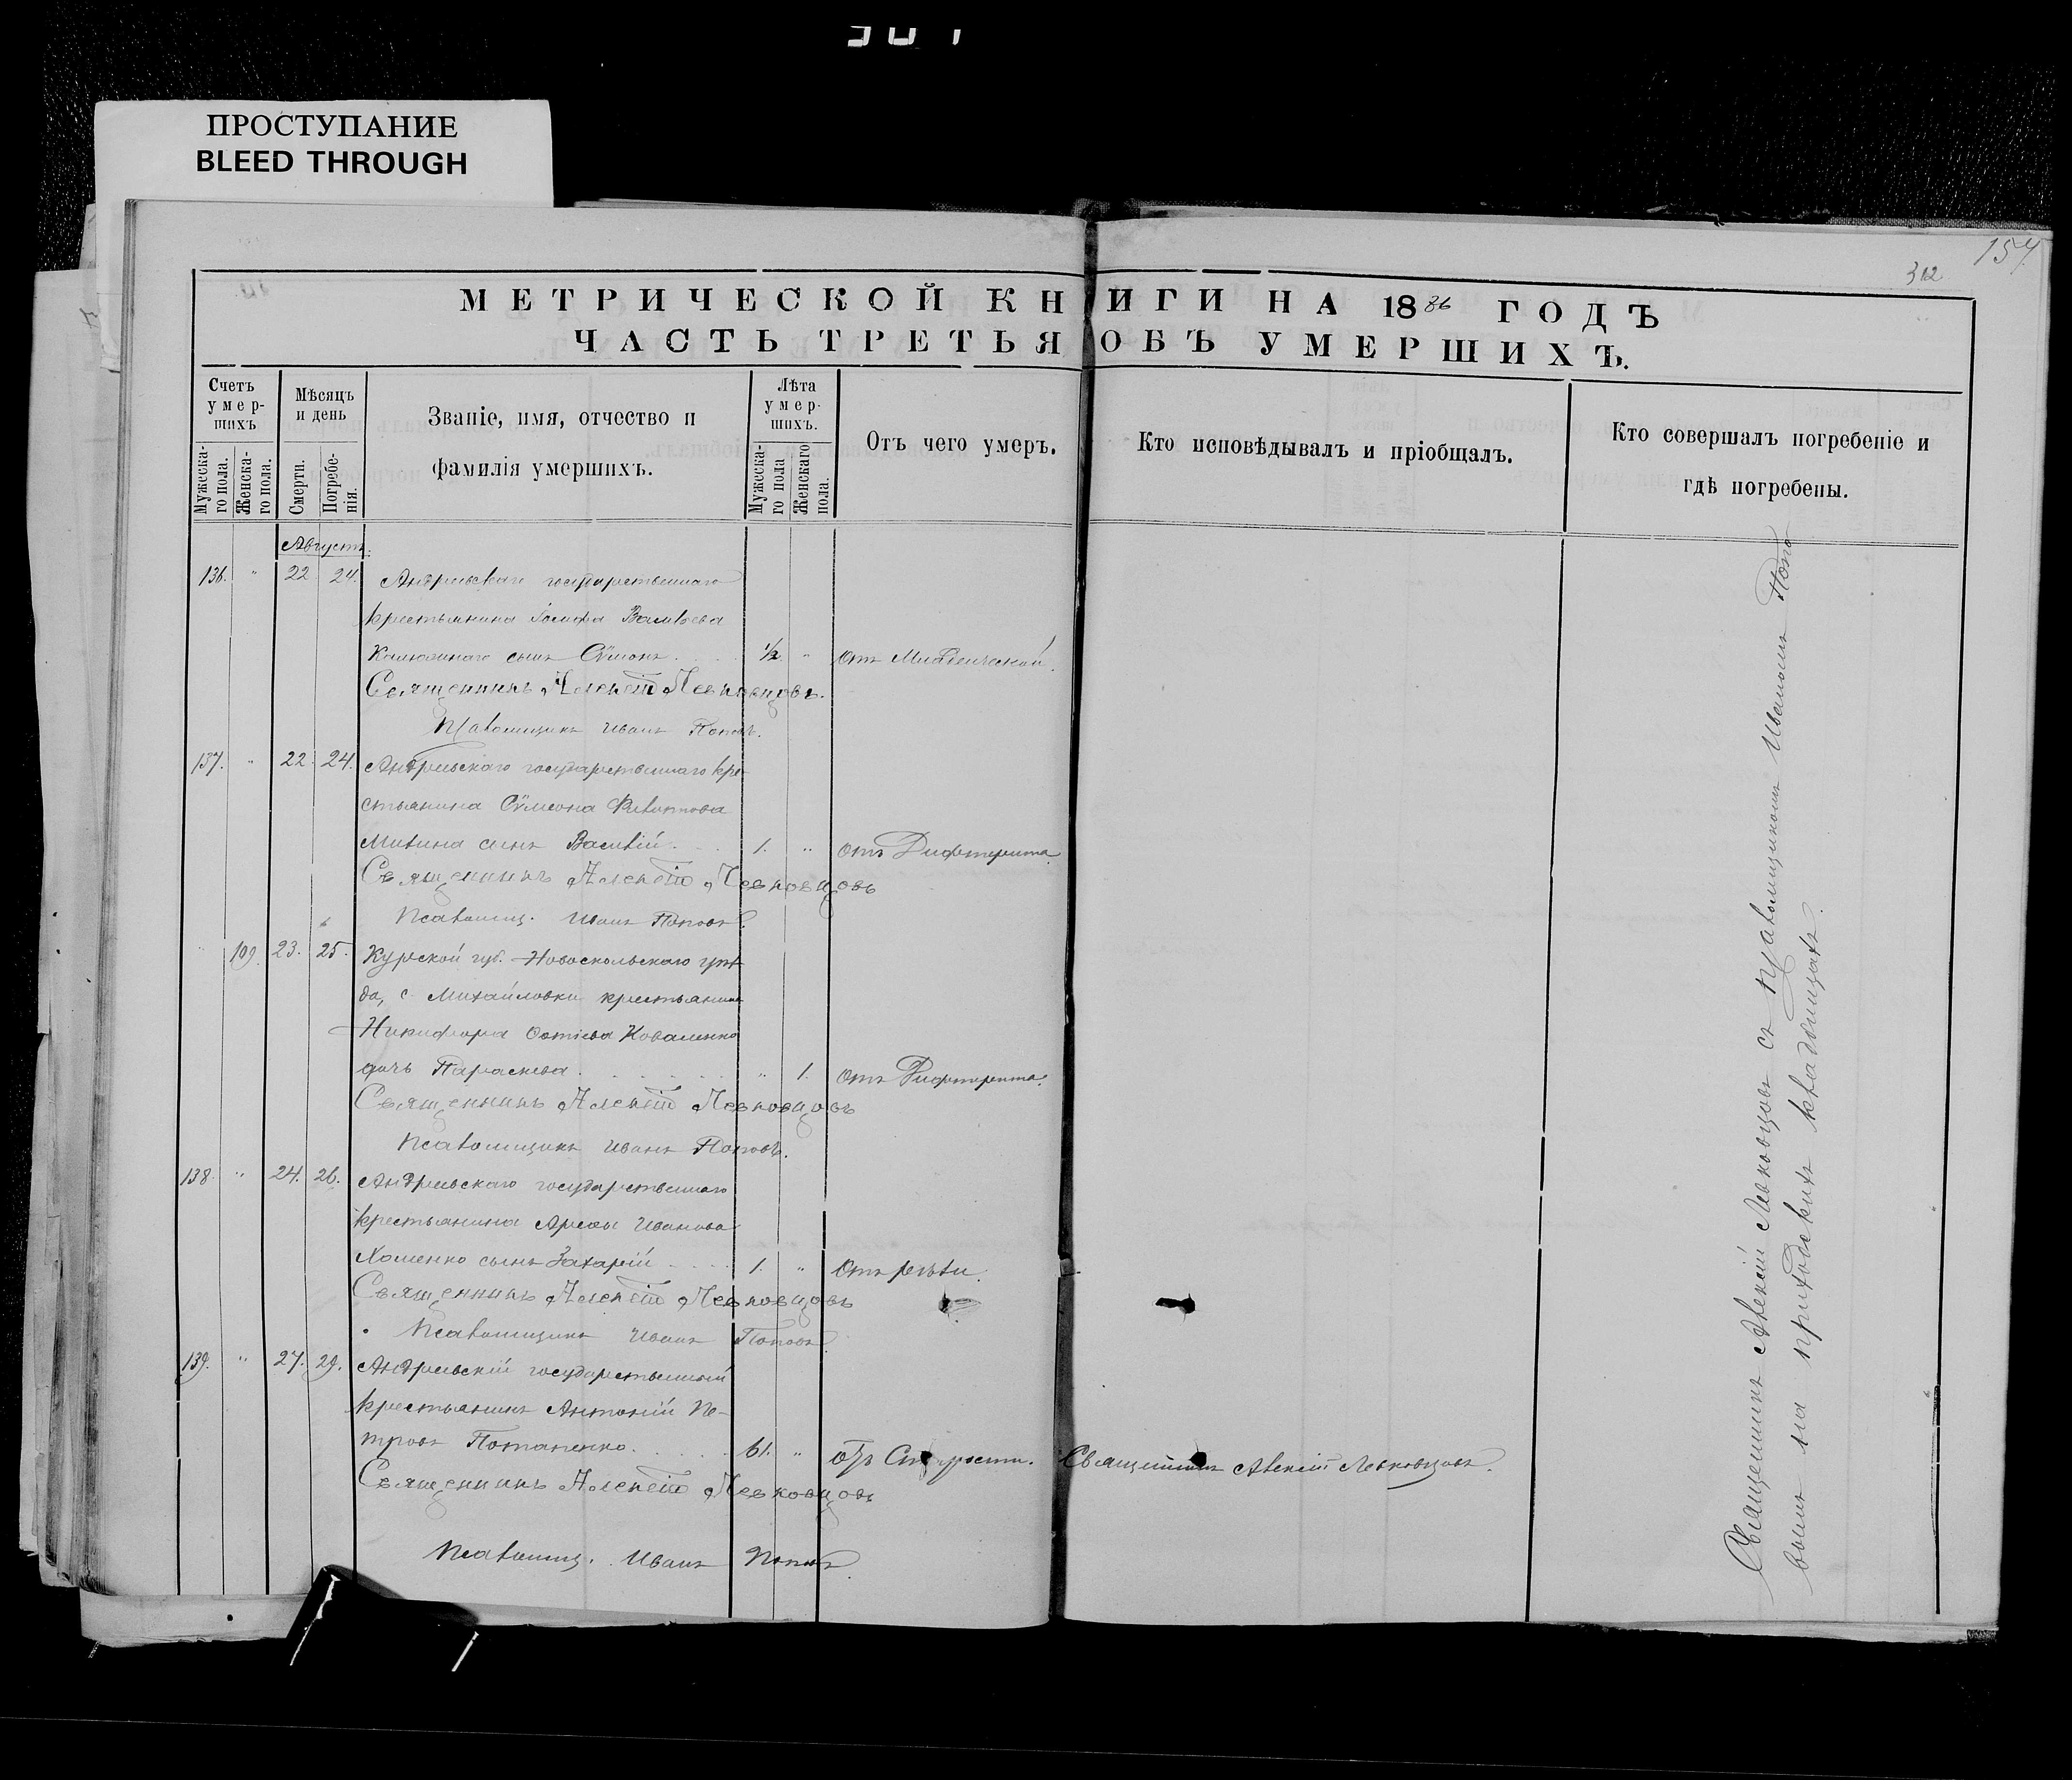 ПРОСТУПАНИЕ
BLEED THROUGH
154
312
МЕТРИЧЕСКОЙ КНИГИ НА 1886 ГОДЪ
ЧАСТЬ ТРЕТЬЯ ОБЪ УМЕРШИХЪ.
Счетъ умер-шихъ
Мужеска-го пола.
Женска-го пола.
Мѣсяцъ и день
Смерти.
Погребе-нія.
Званіе, имя, отчество и
фамилія умершихъ.
Лѣта умер-шихъ.
Мужеска-го пола
Женскаго пола.
Отъ чего умеръ.
Кто исповѣдывалъ и пріобщалъ.
Кто совершалъ погребеніе и
гдѣ погребены.
Августъ.
136. " 22 24. Андреевскаго государственнаго
крестьянина Іосифа
сынъ Сѵмеонъ. ½ " Отъ Младенческой.
Священникъ Алексій Левковцовъ.
Псаломщикъ Иванъ Поповъ.
137. " 22. 24. Андреевскаго государственнаго кре-
стьянина Сѵмеона Филиппова
сынъ Василій. 1. " отъ Дифтерита
Священникъ Алексій Левковцовъ
Псаломщ. Иванъ Поповъ.
" 109. 23. 25. Курской губ. Новооскольскаго уѣз-
да, с. Михайловки крестьянина
Никифора Коваленко
дочь Параскева. " 1. отъ Дифтерита.
Священникъ Алексій Левковцовъ
Псаломщикъ Иванъ Поповъ.
138. " 24. 26. Андреевскаго государственнаго
крестьянина Иванова
Хоменко сынъ Захарій 1. " Отъ рѣзи.
Священникъ Алексій Левковцовъ
Псаломщикъ Иванъ Поповъ.
139. " 27. 29. Андреевскій государственный
крестьянинъ Антоній Пе-
тровъ Потапенко. 61. " отъ Старости. Священникъ Алексій Левковцовъ.
Священникъ Алексій Левковцовъ
Псаломщ. Иванъ Поповъ.
Священникъ Алексій Левковцовъ съ псаломщикомъ Иваномъ Попо
вымъ на приходскихъ кладбищахъ.